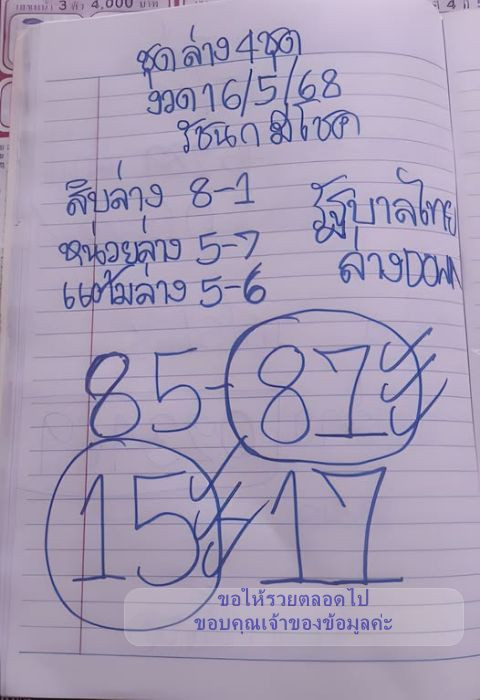 3 ตัว 4,000 บาท
ชุดล่าง 4 ชุด
งวด 16/5/68
รัชนก มีโชค
สิบล่าง 8-1
หน่วยล่าง 5-7
แต้มล่าง 5-6
รัฐบาลไทย
ล่าง DOWN
85-87
15-17
ขอให้รวยตลอดไป
ขอบคุณเจ้าของข้อมูลค่ะ